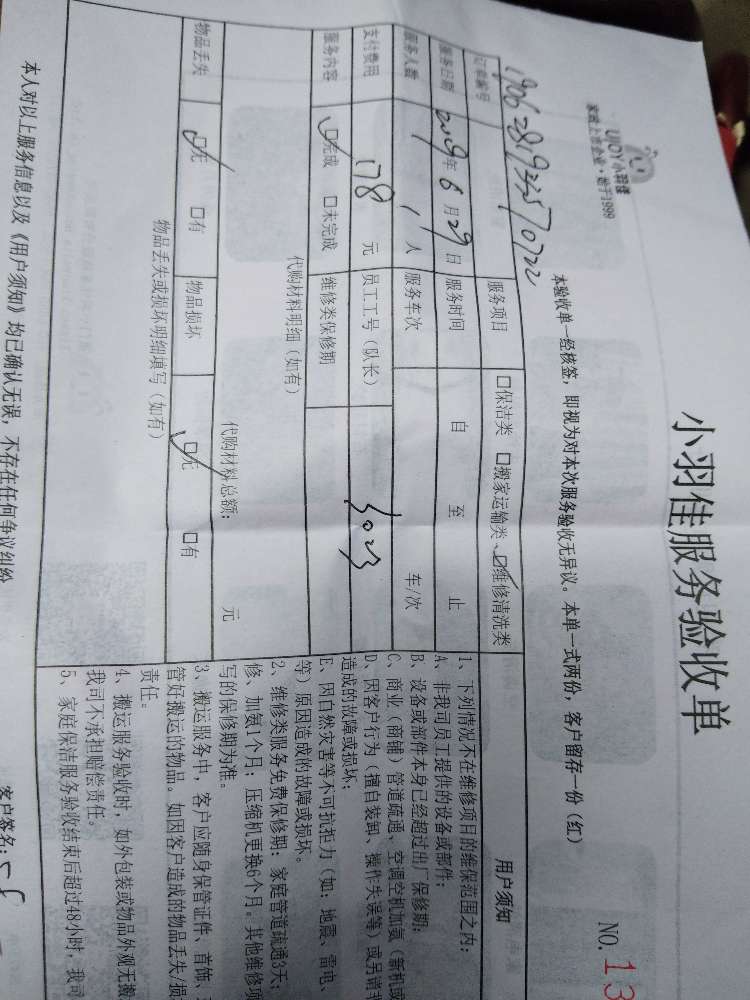 小羽佳服务验收单
UJOY小羽佳
家政上市企业·始于1999
NO. 13
本验收单一经核签，即视为对本次服务验收无异议。本单一式两份，客户留存一份（红）
订单编号
服务项目 □保洁类 □搬家运输类、□维修清洗类
服务日期 2019年 6月 29日 服务时间 自 至 止
服务人数 1 人 服务车次 车/次
支付费用 178 元 员工工号（队长） 3023
服务内容 □完成 □未完成 维修类保修期
代购材料明细（如有）
代购材料总额： 元
物品丢失 □无 □有 物品损坏 □无 □有
物品丢失或损坏明细填写（如有）
用户须知
1、下列情况不在维修项目的维保范围之内：
A、非我司员工提供的设备或部件；
B、设备或部件本身已经超过出厂保修期；
C、商业（商铺）管道疏通、空调空机加氨（新机或
D、因客户行为（擅自装卸、操作失误等）或另请非
造成的故障或损坏；
E、因自然灾害等不可抗拒力（如：地震、雷电、
等）原因造成的故障或损坏。
2、维修类服务免费保修期：家庭管道疏通3天；
修、加氨1个月；压缩机更换6个月。其他维修项
写的保修期为准。
3、搬运服务中，客户应随身保管证件、首饰、
管好搬运的物品。如因客户造成的物品丢失/损
责任。
4、搬运服务验收时，如外包装或物品外观无搬
我司不承担赔偿责任。
5、家庭保洁服务验收结束后超过48小时，我司
本人对以上服务信息以及《用户须知》均已确认无误，不存在任何争议纠纷
客户签名：